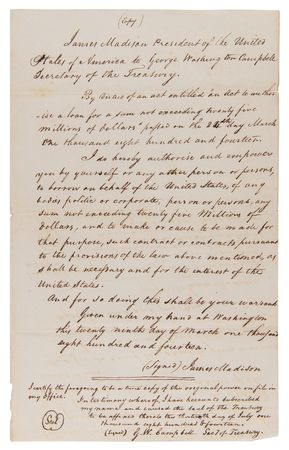 (Copy)
James Madison President of the United
States of America to George Washington Campbell
Secretary of the Treasury.
By virtue of an act entitled an Act to autho-
-rise a loan for a sum not exceeding twenty five
millions of Dollars passed on the 24th day March
One thousand eight hundred and fourteen.
I do hereby authorise and empower
you by yourself or any other person or persons,
to borrow on behalf of the United States, of any
bodies politic or corporate, person or persons, any
sum not exceeding twenty five Millions of
Dollars, and to make or cause to be made for
that purpose, such contract or contracts, pursuant
to the provisions of the law above mentioned, as
shall be necessary and for the interest of the
United States.
And for so doing this shall be your warrant
Given under my hand at Washington
this twenty ninth day of March one thousand
eight hundred and fourteen.
(Signed) James Madison
I certify the foregoing to be a true copy of the original power on file in
my Office.
In testimony whereof I have hereunto subscribed
my name and caused the Seal of the Treasury
to be affixed hereto this thirtieth day of July one
thousand eight hundred & fourteen.
Seal
G. W. Campbell Sec. of Treasury.